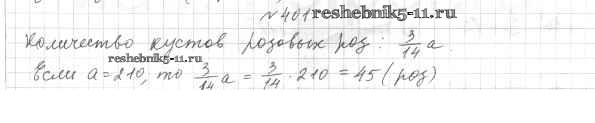 №401 reshebnik5-11.ru
Количество кустов розовых роз: 3/14 a.
reshebnik5-11.ru
Если a = 210, то 3/14 a = 3/14 · 210 = 45 (роз)